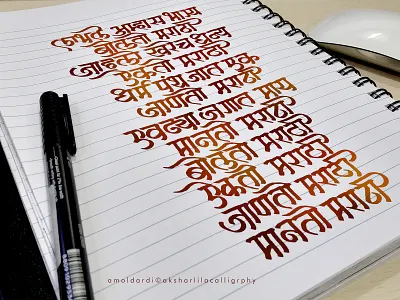 लाभले आम्हास भाग्य
बोलतो मराठी
जाहलो खरेच धन्य
ऐकतो मराठी
धर्म पंथ जात एक
जाणतो मराठी
एवढ्या जगात माय
मानतो मराठी
बोलतो मराठी
ऐकतो मराठी
जाणतो मराठी
मानतो मराठी
amoldardi@aksharlilacalligrphy